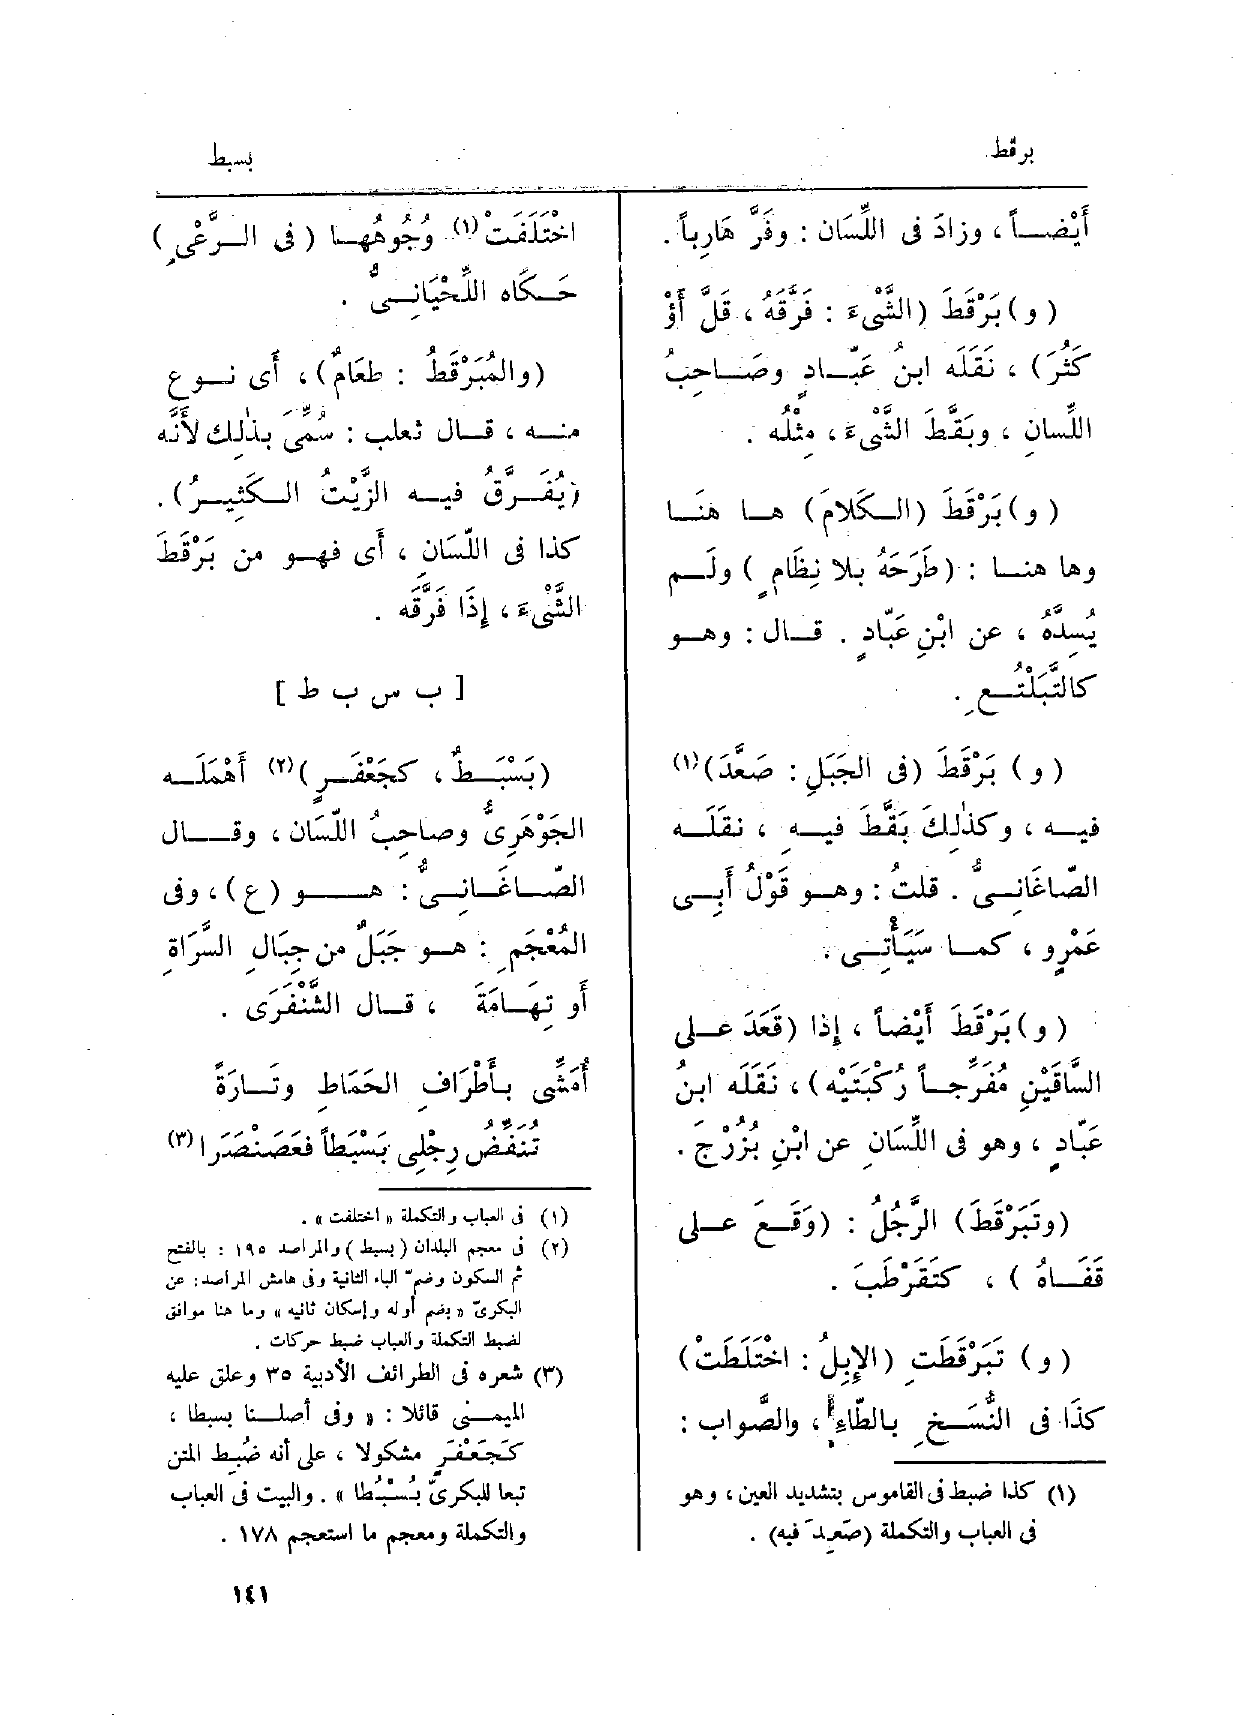 برقط
بسبط
أَيْضــاً ، وزادَ فى اللِّسَان : وفَرَّ هَارِباً .
( و ) بَرْقَطَ ( الشَّىْءَ : فَرَّقَهُ ، قَلَّ أَوْ
كَثُرَ ) ، نَقَلَه ابنُ عَبّــادٍ وصَــاحِبُ
اللِّسَانِ ، وبَقَّطَ الشَّىْءَ ، مِثْلُه .
( و ) بَرْقَطَ ( الــكَلامَ ) هــا هنَــا
وها هنــا : ( طَرَحَهُ بِلا نِظَامٍ ) ولَــم
يُسِدَّهُ ، عن ابْنِ عَبّادٍ . قــال : وهــو
كالتَّبَلْتُــعِ .
( و ) بَرْقَطَ ( فى الجَبَلِ : صَعَّدَ ) (١)
فيــه ، وكذٰلِكَ بَقَّطَ فيــه ، نقَلَــه
الصّاغَانِــىُّ . قلتُ : وهــو قَوْلُ أَبِــى
عَمْرٍو ، كمــا سَيَأْتِــى .
( و ) بَرْقَطَ أَيْضاً ، إِذا ( قَعَدَ عــلى
السَّاقَيْنِ مُفَرِّجــاً رُكْبَتَيْه ) ، نَقَلَه ابنُ
عَبّادٍ ، وهو فى اللِّسَانِ عن ابْنِ بُزُرْجَ .
( وتَبَرْقَطَ ) الرَّجُلُ : ( وَقَــعَ عــلى
قَفَــاهُ ) ، كتَقَرْطَبَ .
( و ) تَبَرْقَطَتِ ( الإِبِلُ : اخْتَلَطَتْ )
كذَا فى النُّسَــخِ بالطّاءِ ، والصَّواب :
(١) كذا ضبط فى القاموس بتشديد العين ، وهو
فى العباب والتكملة ( صَعِدَ فيه ) .
اخْتَلَفَتْ (١) وُجُوهُهــا ( فى الــرَّعْىِ )
حَــكَاه اللِّحْيَانِــىُّ .
( والمُبَرْقَطُ : طعَامٌ ) ، أَى نــوع
منــه ، قــال ثعلب : سُمِّىَ بذٰلِكَ لأَنَّه
( يُفَــرَّقُ فيــه الزَّيْتُ الــكَثِيــرُ ) .
كذا فى اللّسَان ، أَى فهــو من بَرْقَطَ
الشَّىْءَ ، إِذَا فَرَّقَه .
[ ب س ب ط ]
( بَسْبَــطٌ ، كجَعْفَــرٍ ) (٢) أَهْمَلَــه
الجَوْهَرِىُّ وصاحِبُ اللّسَان ، وقــال
الصّــاغَــانِــىُّ : هــو ( ع ) ، وفى
المُعْجَمِ : هــو جَبَلٌ من جِبَالِ السَّرَاةِ
أَو تِهَــامَةَ ، قــال الشَّنْفَرَى .
أُمَشِّى بــأَطْرَافِ الحَمَاطِ وتَــارَةً
تُنَفِّضُ رِجْلِى بَسْبَطاً فعَصَنْصَرَا (٣)
(١) فى العباب والتكملة « اختلفت » .
(٢) فى معجم البلدان ( بسبط ) والمراصد ١٩٥ : بالفتح
ثم السكون وضمّ الباء الثانية وفى هامش المراصد : عن
البكرىّ « بضم أوله وإسكان ثانيه » وما هنا موافق
لضبط التكملة والعباب ضبط حركات .
(٣) شعره فى الطرائف الأدبية ٣٥ وعلق عليه
الميمــنى قائلا : « وفى أصلــنا بسبطا ،
كَجَعْفَرٍ مشكولا ، على أنه ضُبِط المتن
تبعا للبكرىّ بُسْبُطا » . والبيت فى العباب
والتكملة ومعجم ما استعجم ١٧٨ .
١٤١